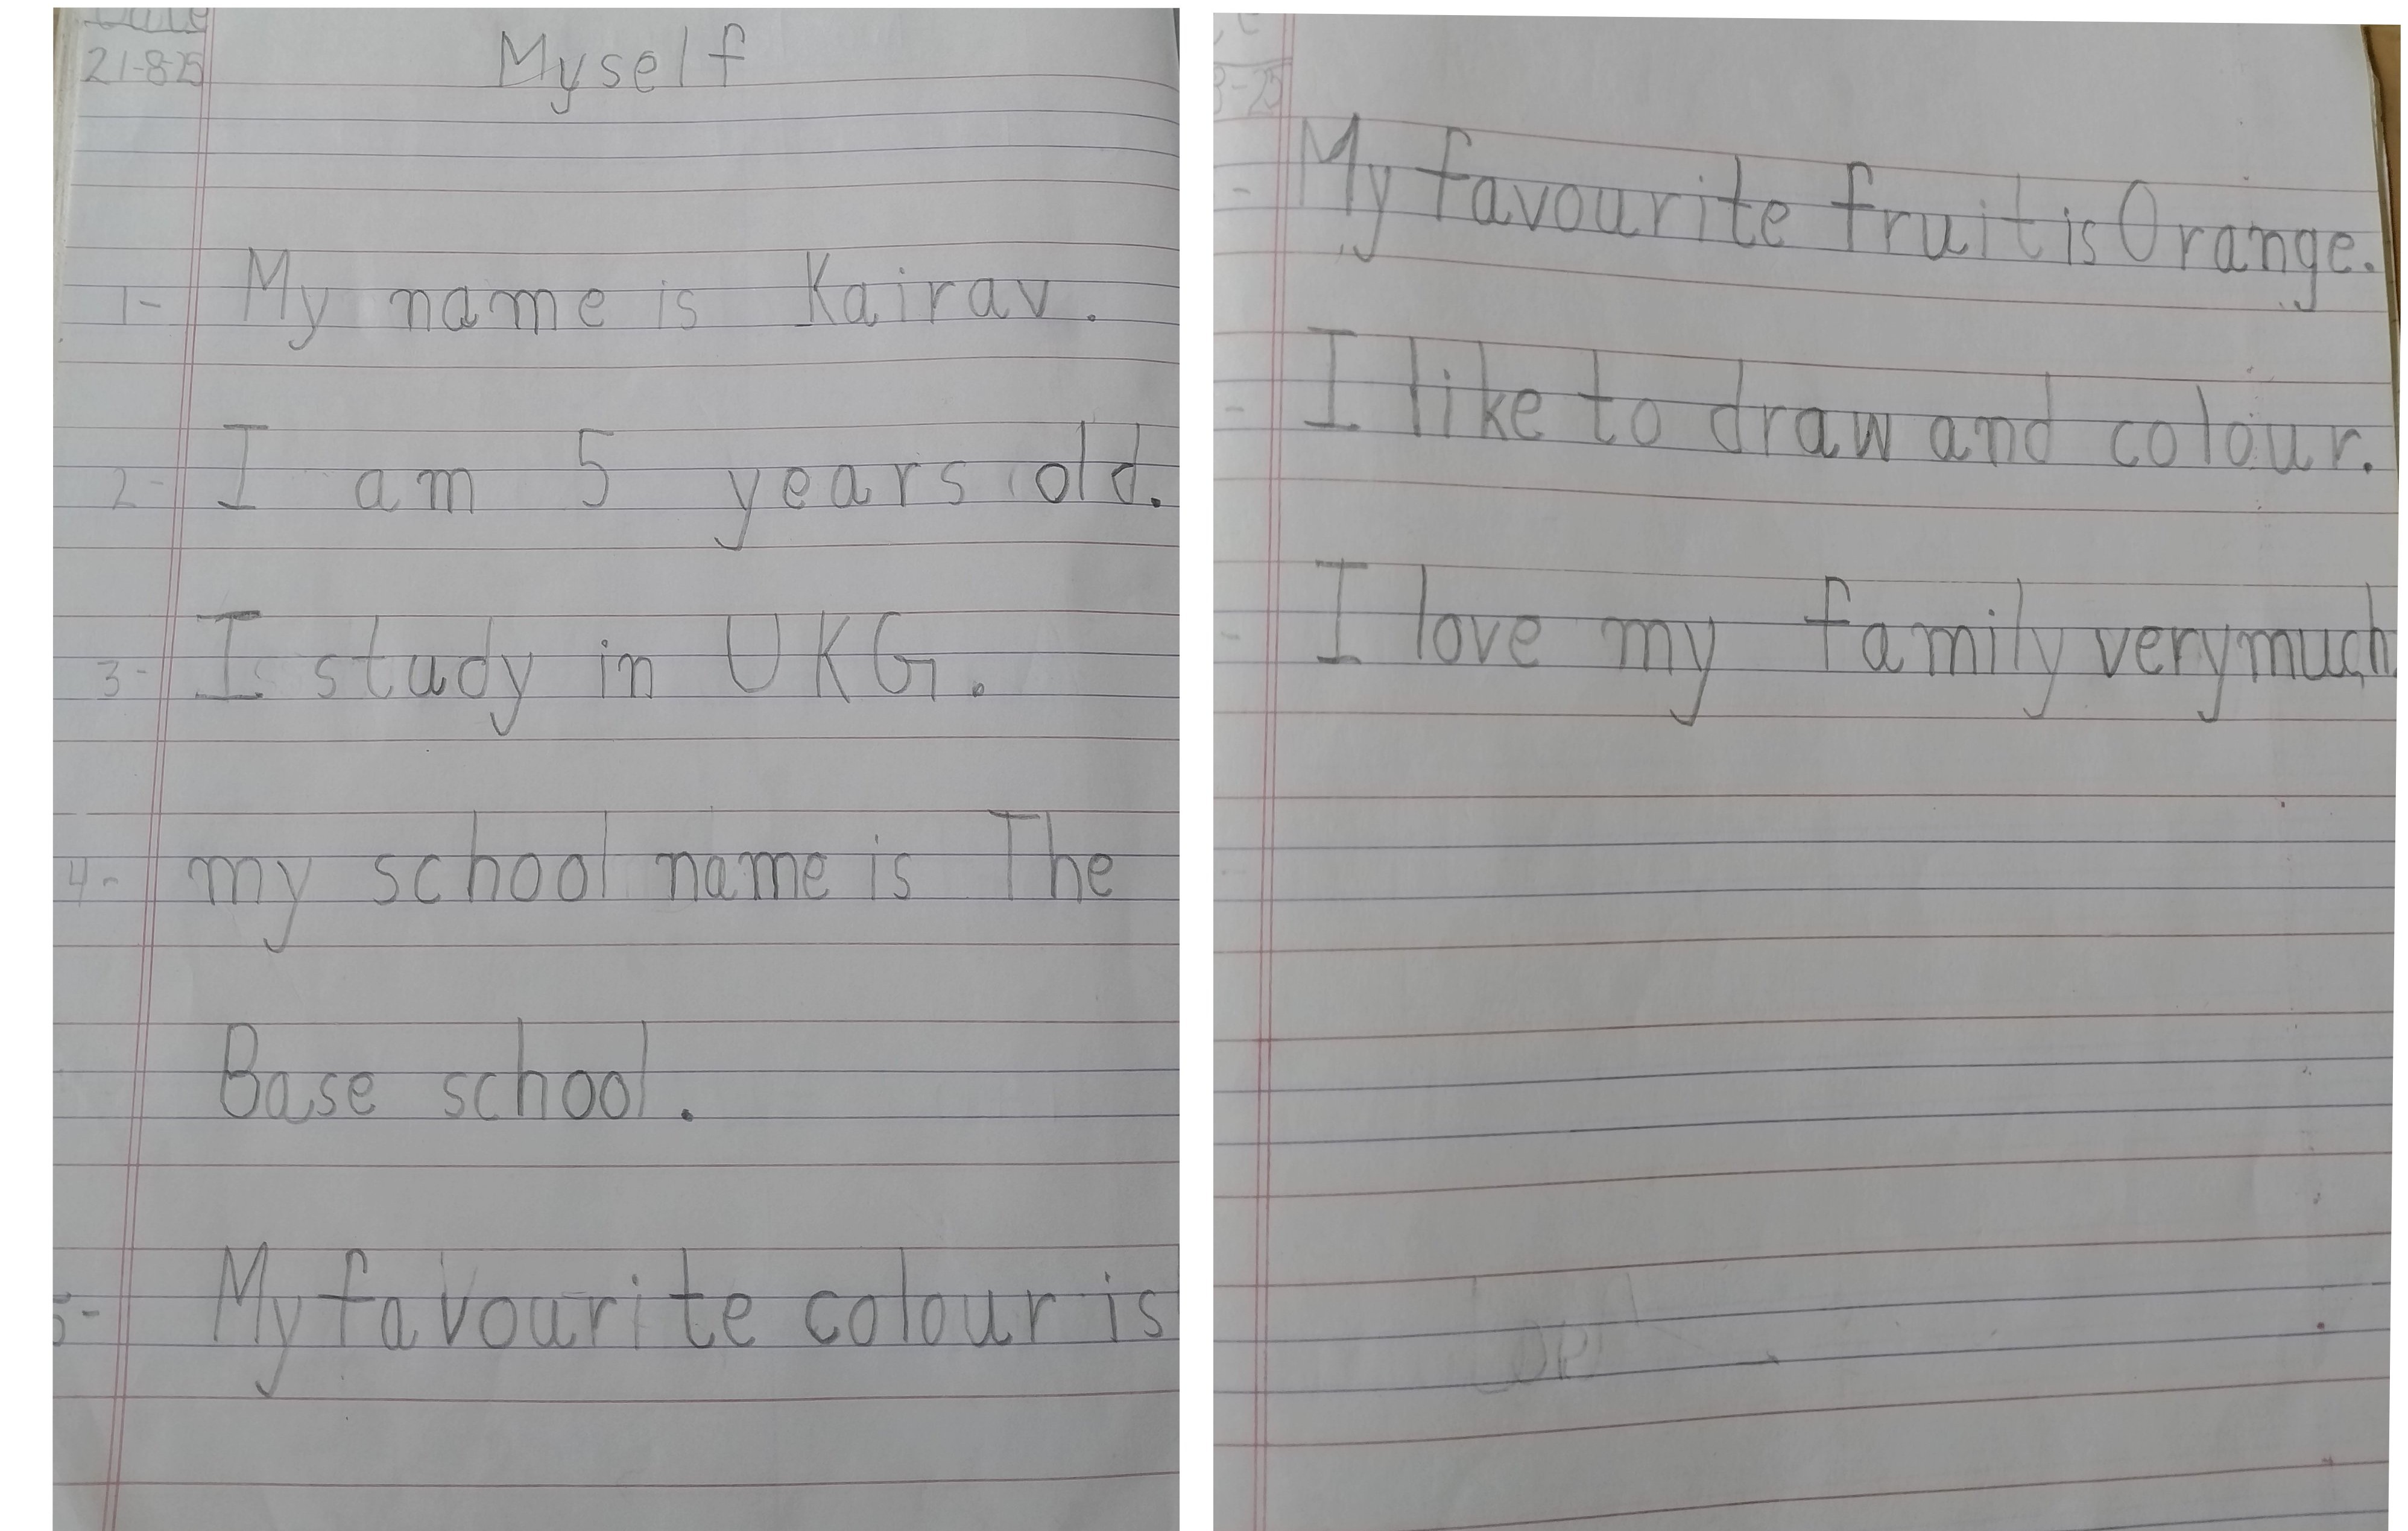 Date
21-8-25
Myself
1- My name is Kairav.
2- I am 5 years old.
3- I study in UKG.
4- my school name is The
Base school.
5- My favourite colour is
- My favourite fruit is Orange.
- I like to draw and colour.
- I love my family very much.